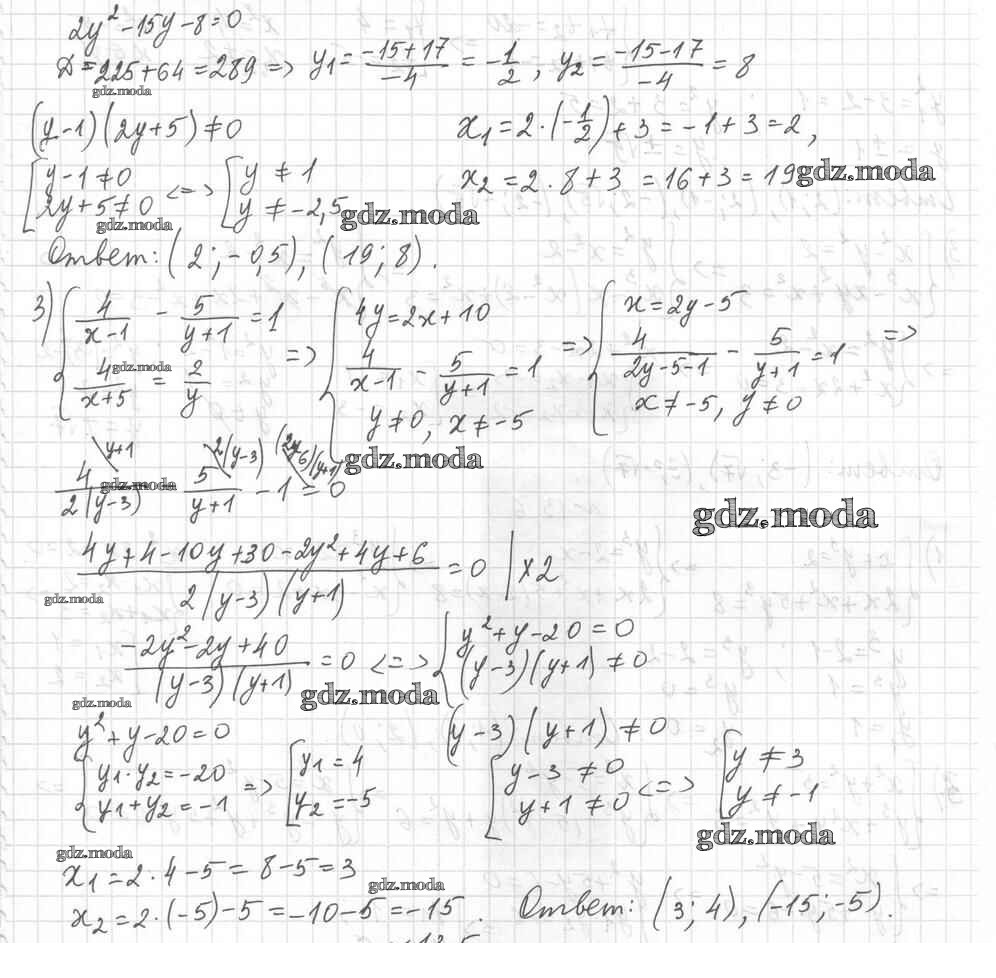 2y² - 15y - 8 = 0
D = 225 + 64 = 289 => y₁ = (-15+17)/(-4) = -1/2, y₂ = (-15-17)/(-4) = 8
gdz.moda
(y-1)(2y+5) ≠ 0
x₁ = 2·(-1/2) + 3 = -1 + 3 = 2,
[ y-1 ≠ 0 <=> [ y ≠ 1
2y+5 ≠ 0 y ≠ -2,5
x₂ = 2·8 + 3 = 16 + 3 = 19 gdz.moda
gdz.moda gdz.moda
Ответ: (2; -0,5), (19; 8).
3) { 4/(x-1) - 5/(y+1) = 1
4/(x+5) = 2/y
gdz.moda
=> { 4y = 2x + 10
4/(x-1) - 5/(y+1) = 1
y ≠ 0, x ≠ -5
=> { x = 2y - 5
4/(2y-5-1) - 5/(y+1) = 1 =>
x ≠ -5, y ≠ 0
gdz.moda
y+1 2(y-3) (2y-6)(y+1)
4/(2(y-3)) - 5/(y+1) - 1 = 0
gdz.moda
gdz.moda
(4y+4-10y+30-2y²+4y+6)/(2(y-3)(y+1)) = 0 | ×2
gdz.moda
(-2y²-2y+40)/((y-3)(y+1)) = 0 <=> { y²+y-20 = 0
(y-3)(y+1) ≠ 0
gdz.moda
gdz.moda
y²+y-20 = 0
{ y₁·y₂ = -20
y₁+y₂ = -1
=> [ y₁ = 4
y₂ = -5
(y-3)(y+1) ≠ 0
[ y-3 ≠ 0
y+1 ≠ 0
<=> [ y ≠ 3
y ≠ -1
gdz.moda
gdz.moda
x₁ = 2·4-5 = 8-5 = 3
gdz.moda
x₂ = 2·(-5)-5 = -10-5 = -15.
Ответ: (3; 4), (-15; -5).